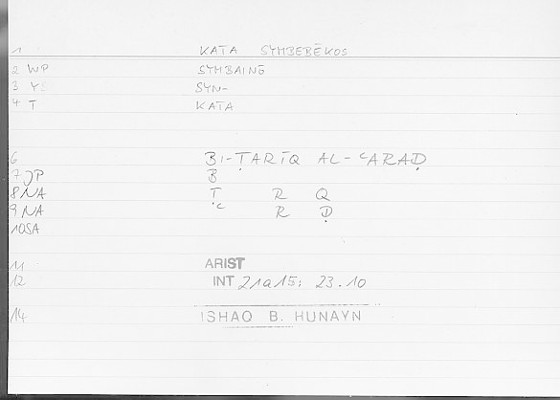 1 KATA SYMBEBĒKOS
2 WP SYMBAINŌ
3 Y SYN-
4 T KATA
6 BI-ṬARĪQ AL-ʿARAḌ
7 JP B
8 NA Ṭ R Q
9 NA ʿ R Ḍ
10SA
11 ARIST
12 INT 21a15; 23.10
14 ISHAQ B. HUNAYN